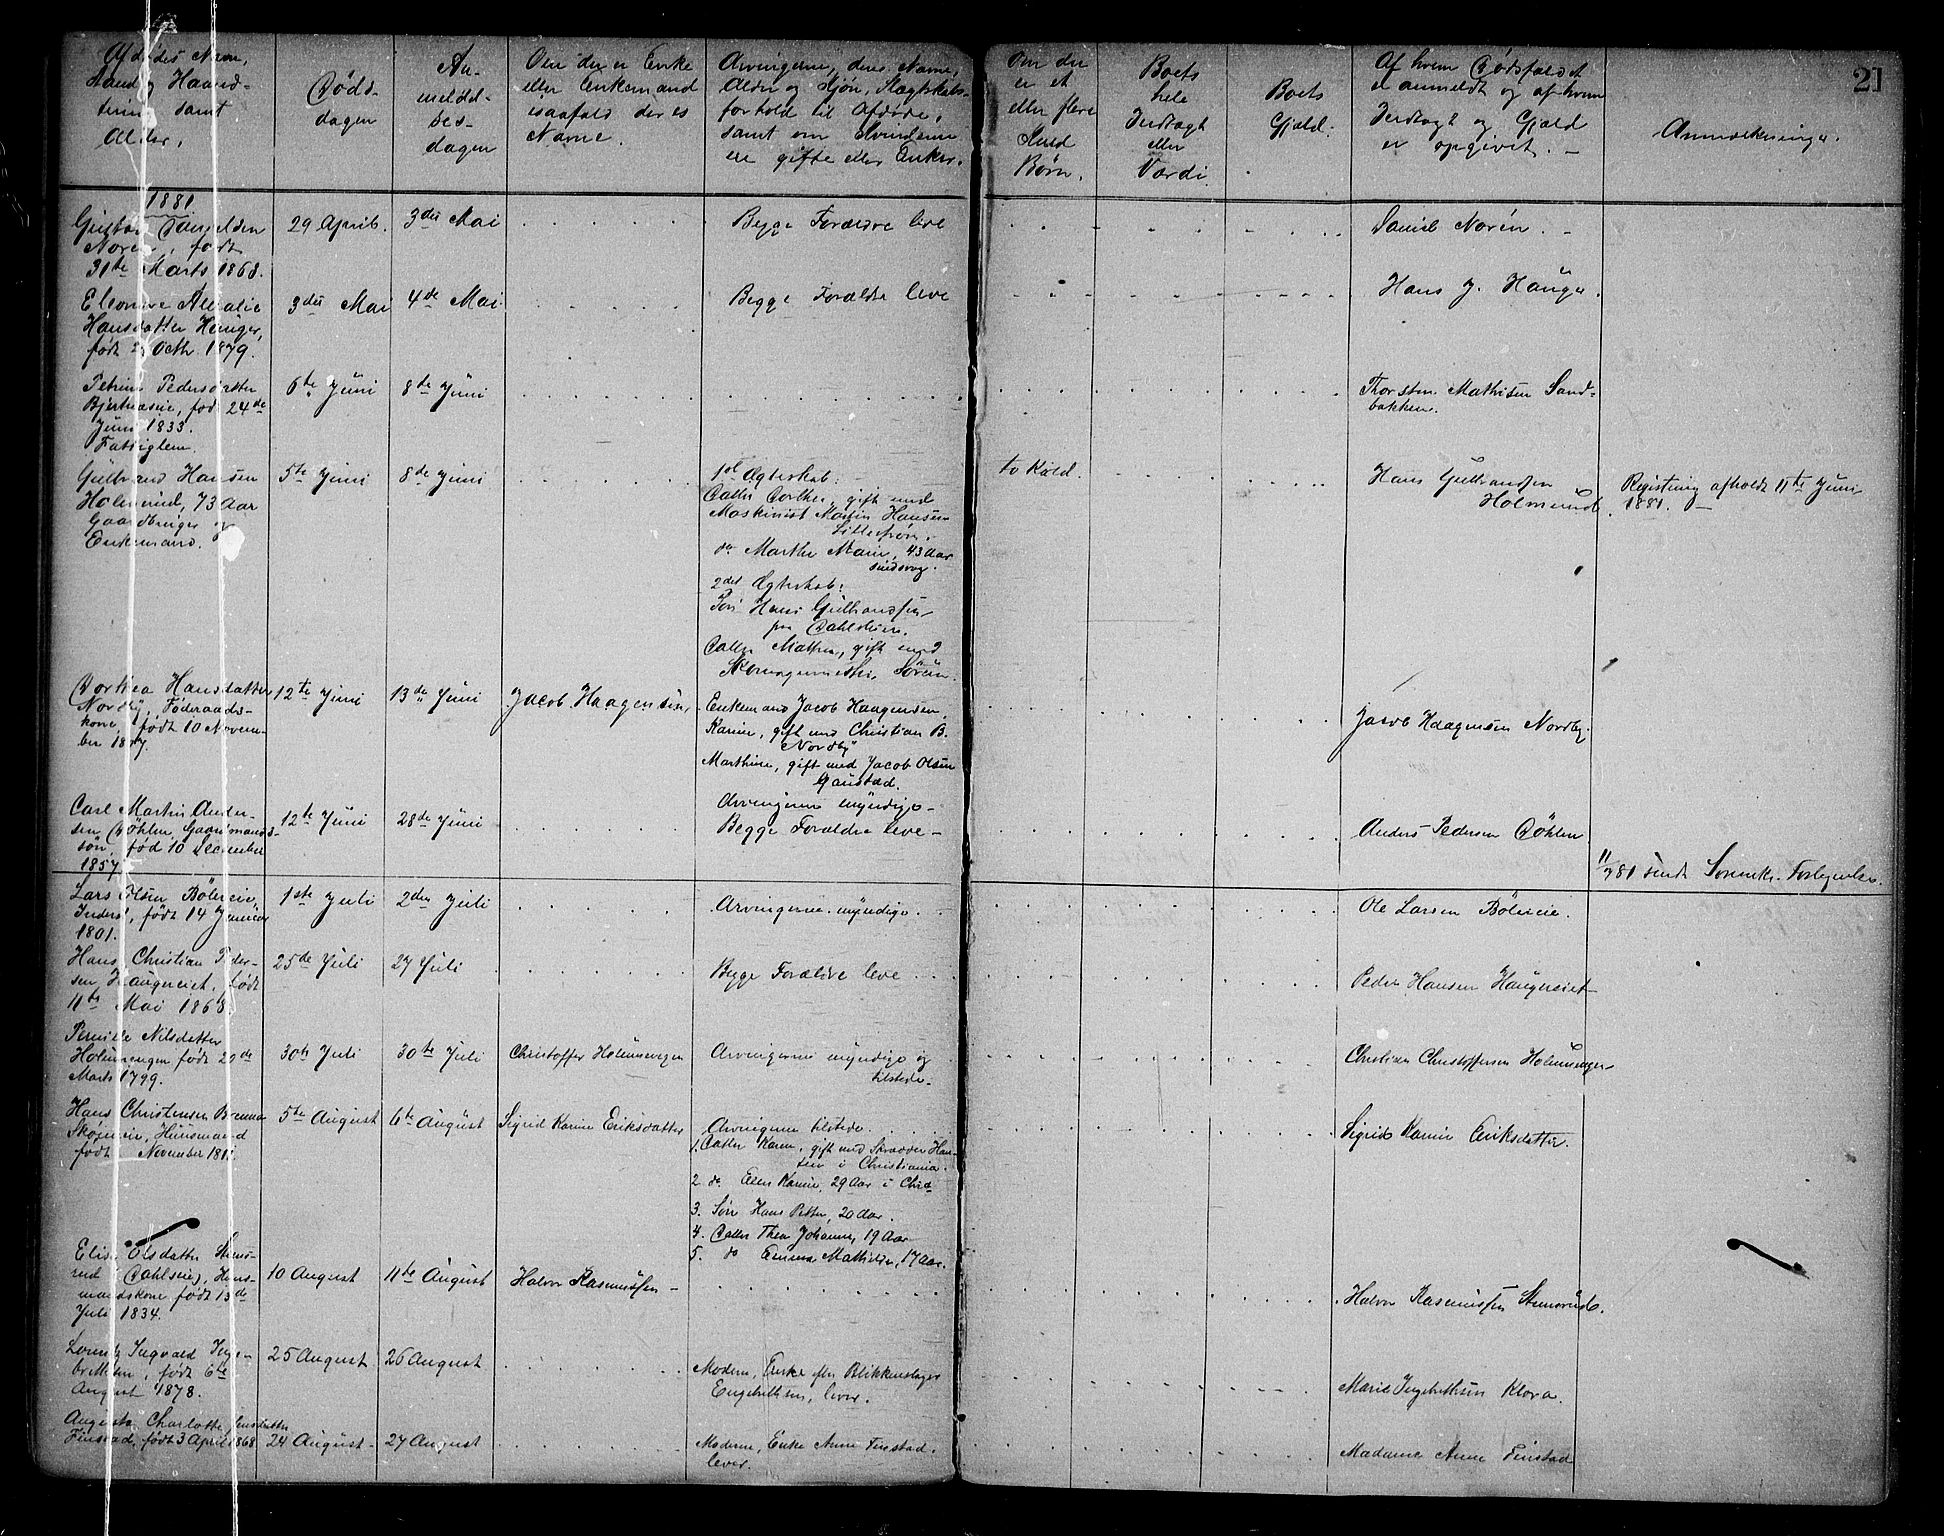 21
Afdødes Navn,
Stand og Haand-
tering samt
Alder.
Døds-
dagen
An-
meldel-
ses-
dagen
Om der er Enke
eller Enkemand
isaafald deres
Navne.
Arvingerne, deres Navne,
Alder og Kjøn, Slægtskabs-
forhold til Afdøde,
samt om Kvinderne
ere gifte eller Enker.
Om der
er et
eller flere
Kuld
Børn.
Boets
hele
Indtægt
eller
Værdi.
Boets
Gjæld.
Af hvem Dødsfaldet
er anmeldt og af hvem
Indtægt og Gjæld
er opgivet. -
Anmærkninger.
1881
Gustav Danielsen
Noren, født
31te Marts 1868.
29 April.
3die Mai
Begge Forældre leve
Daniel Norén. -
Eleonore
Hansdatter Hauger,
født Octbr. 1879.
3die Mai
4de Mai.
Begge Forældre leve
Hans J. Hauger.
Petrine Pedersdatter
født 24de
Juni 1833.
Fattiglem.
6te Juni
8de Juni
Thorsten Mathisen Sand-
bakken.
Gulbrand Hansen
Holmerud, 73 Aar
Gaardbruger og
Enkemand.
5te Juni
8de Juni
1ste Ægteskab:
Datter Dorthea, gift med
Maskinist Martin Hansen
Lillestrøm.
do Marthe Marie, 43 Aar
sindsvag.
2det Ægteskab:
Søn Hans Gulbrandsen
paa
Datter Mathea, gift med
Skomagermester Sørén.
to Kuld.
Hans Gulbrandsen
Holmerud.
Registrering afholdt 11te Juni
1881. -
Dorthea Hansdatter
Nordby, Føderaads-
kone, født 10 Novem-
ber 18
12te Juni
13de Juni
Jacob Haagensen,
Enkemand Jacob Haagensen
Karine, gift med Christian B.
Nordby
Marthine, gift med Jacob Olsen
Ganstad.
Arvingerne myndige -
Jacob Haagensen Nordby.
Carl Martin Ander-
sen Døhlen, Gaardmands-
søn, født 10 December
1857
12te Juni
28de Juni
Begge Forældre leve -
Anders Pedersen Døhlen
11/7 81 sendt
Lars Olsen Bølereie,
Inderst, født 14 Januar
1801.
1ste Juli
2den Juli
Arvingerne myndige.
Ole Larsen Bølereie.
Hans Christian Peder-
sen Haugereiet, født
11te Mai 1868.
25de Juli
27 Juli
Begge Forældre leve
Peder Hansen Haugereiet
Pernille Nilsdatter
Holmsengen født 20de
Marts 1799.
30te Juli
30te Juli
Christoffer Holmsengen
Arvingerne myndige og
tilstede.
Christian Christoffersen Holmsengen
Hans Christensen
Husmand
født November
5te August
6te August
Sigrid Karine Eriksdatter
Arvingerne tilstede.
1. Datter Karen, gift med Skrædder Han-
sen i Christiania.
2 do Ellen Karine, 29 Aar i Chra
3. Søn Hans Petter, 20 Aar.
4. Datter Thea Johanne, 19 Aar
5. do Emma Mathilde, 17 Aar.
Sigrid Karine Eriksdatter.
Elise Olsdatter Stens-
rud Hus-
mandskone født 13de
Juli 1834.
10 August
11te August
Halvor Rasmussen -
Halvor Rasmussen Stensrud.
Lorentz Ingvald Inge-
brettsen, født 6te
August 1878.
25 August
26 August
Moderen, Enke efter Blikkenslager
Engebrettsen, lever.
Marie Ingebrettsen Kløva.
Augusta Charlotte Jensdatter
Finstad, født 3 April 1868
24 August -
27 August
Moderen, Enke Anne Finstad.
lever.
Madame Anne Finstad